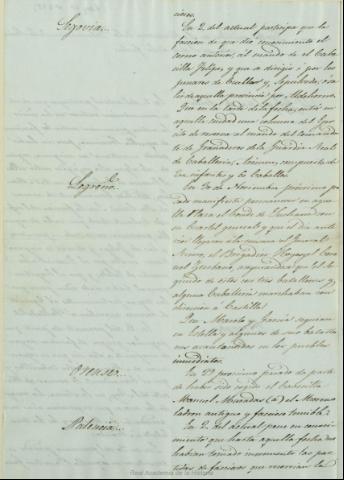 cion.
Segovia..
En 2. del actual participa que la
faccion de que dio conocimiento el
correo anterior, al mando de el Cabe-
cilla Felipe, y que se dirigio por los
pinares de Cuellar y Sepulveda, salio
de aquella provincia por Aldehorno.
Que en la tarde de la fecha, entró en
aquella ciudad una columna del Exer-
cito de reserva al mando del Coman-
te de Granaderos de la Guardia Real
de Caballeria, compuesta de
infantes y 60 Caballos.
Logroño.
En 30 de Noviembre próximo pa-
sado manifiesta permanecer en aque-
lla Plaza el Conde de Luchana con
su Cuartel general; y que el dia ante-
rior llegaron a la misma el General
el Brigadier Hoyos y el Coro-
nel Zurbano, asegurandose que el se-
gundo de estos con tres batallones y
alguna Caballeria marchaban con
direccion a Castilla.
Que Maroto y Garcia seguian
en Estella y algunos de sus batallo-
nes acantonados en los pueblos
inmediatos.
Orense..
En 29 proximo pasado da parte
de haber sido cogido el Cabecilla
Manuel (a) el Moreno
ladron antiguo y faccioso temible.
Palencia..
En 2. del actual pone en conoci-
miento que hasta aquella fecha no
habian tomado incremento las par-
tidas de facciosos que recorrian la
Real Academia de la Historia